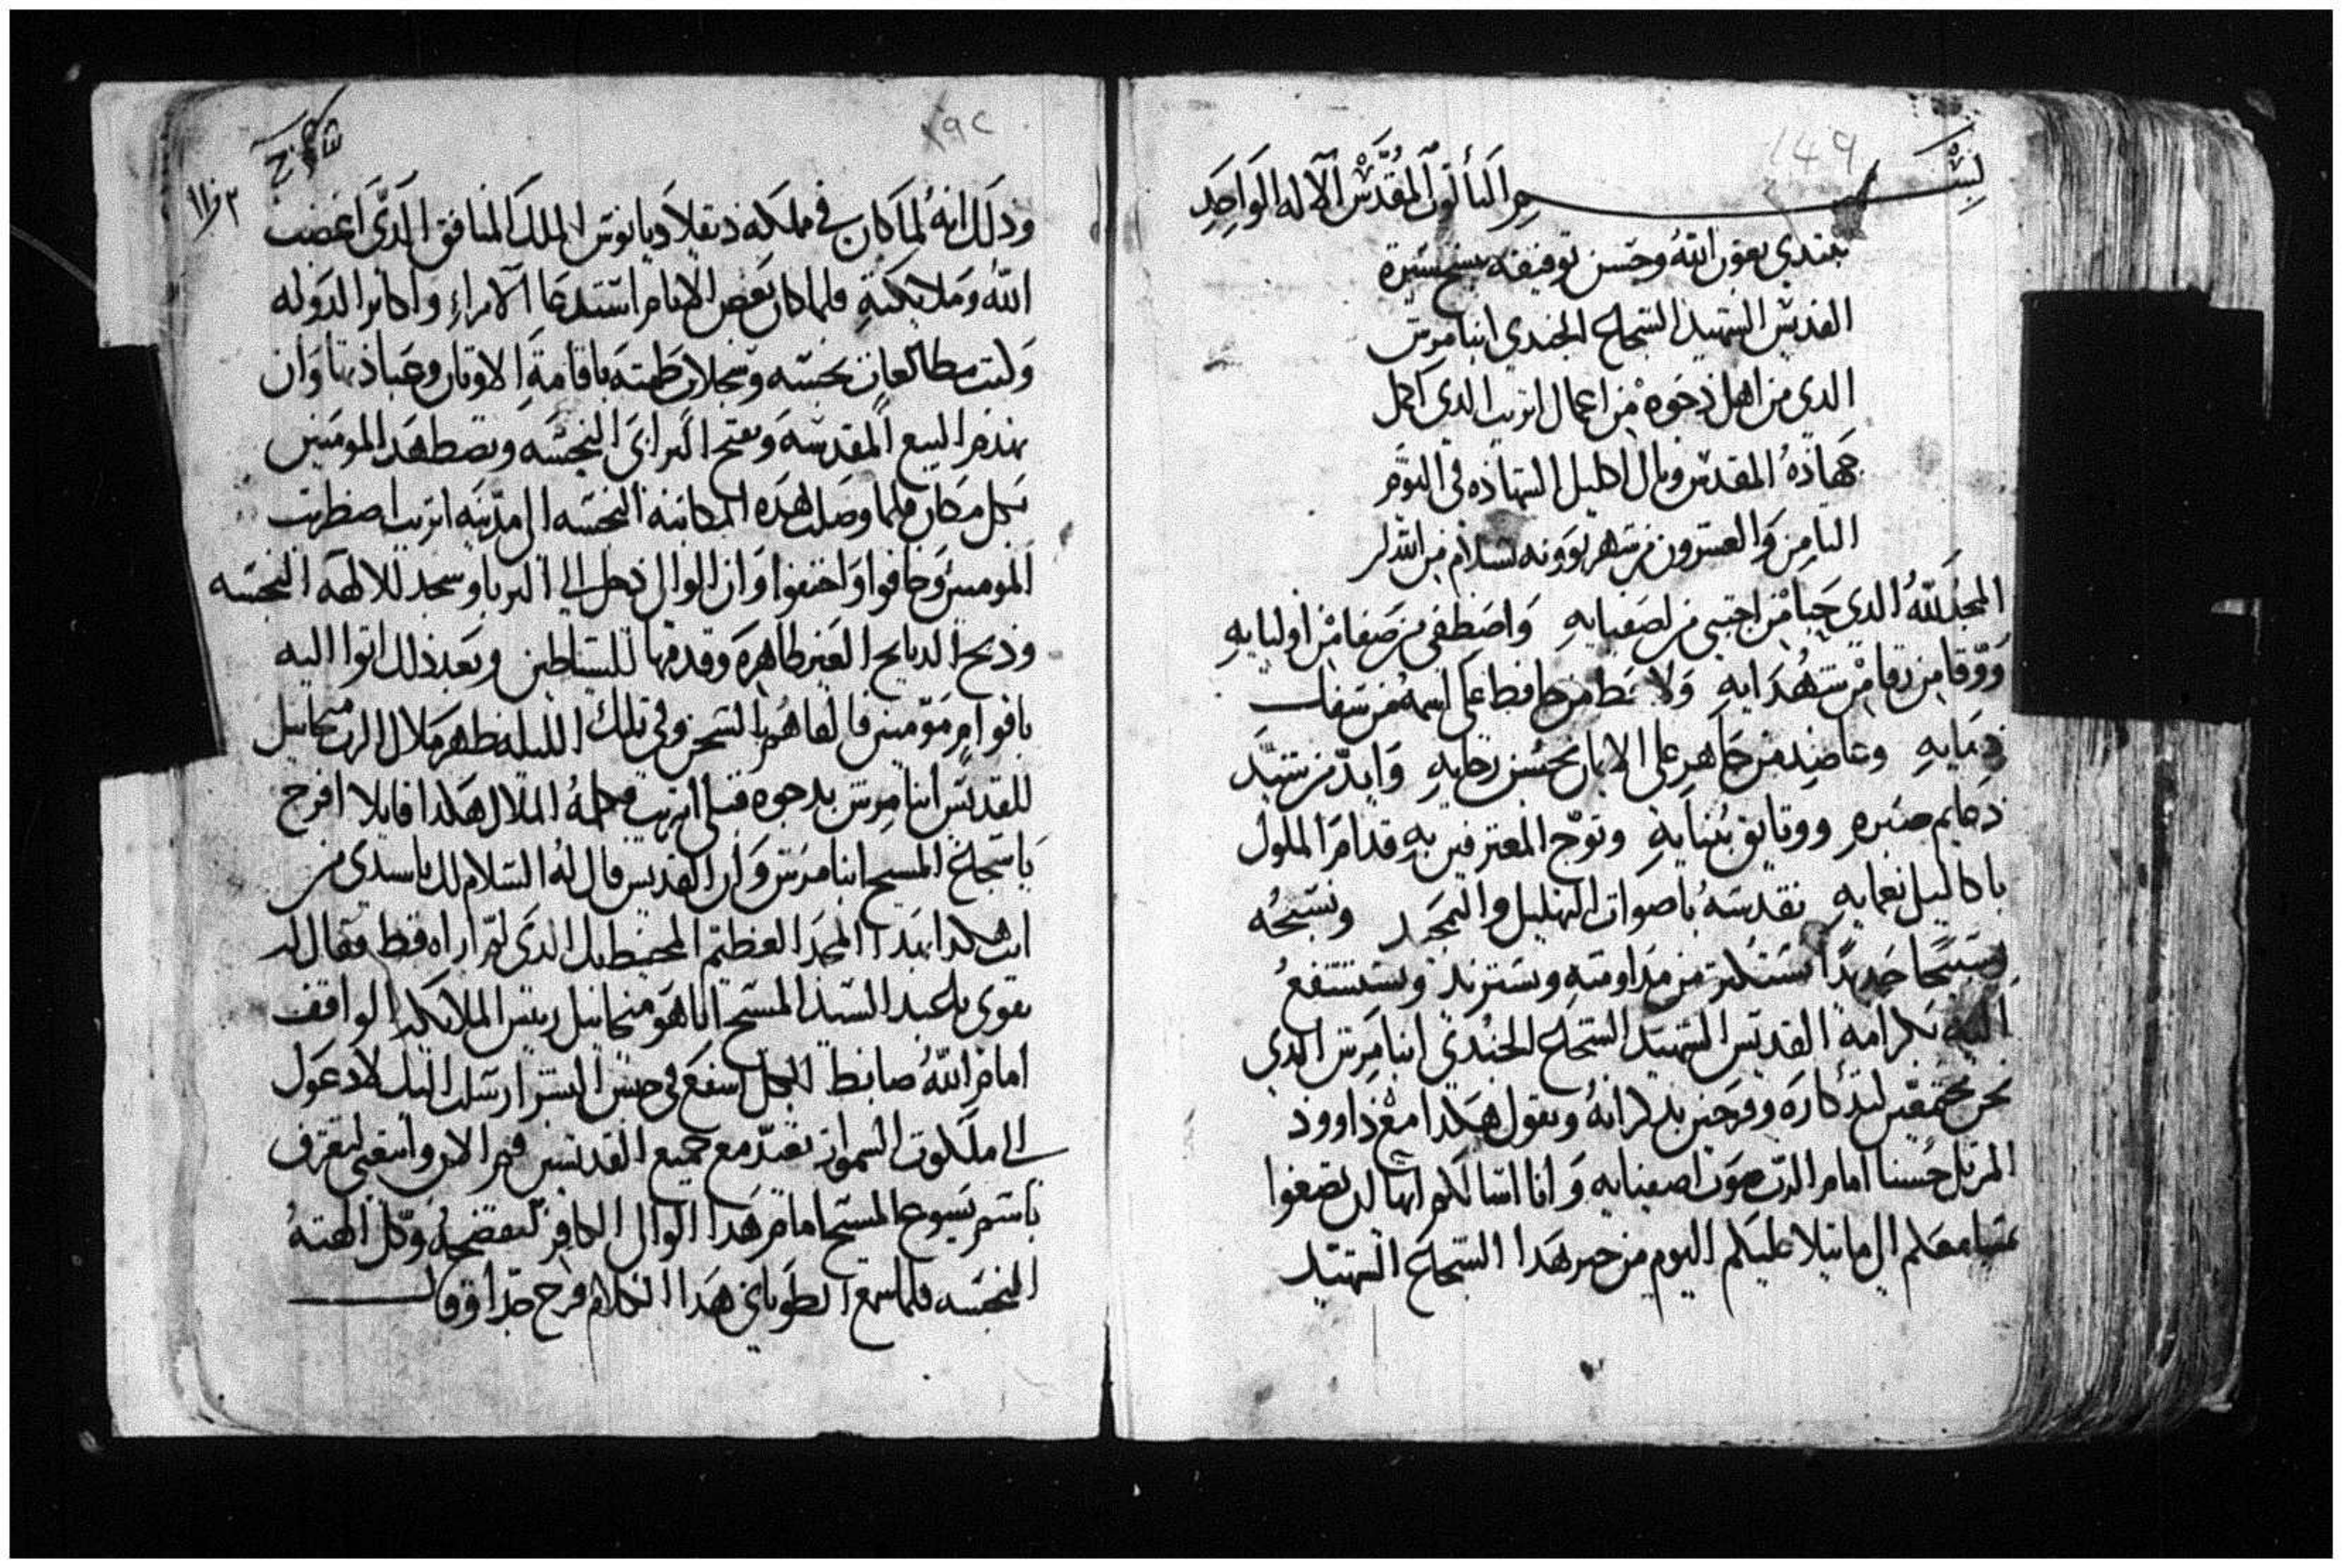 149
بسم التالوت المقدس الاله الواحد
نبتدي بعون الله وحسن توفيقه بنسخ سيرة
القديس الشهيد الشجاع الجندي انبا مرس
الدي من اهل دجوه من اعمال اتريب الدي اكمل
جهاده المقدس ونال اكليل الشهاده في اليوم
التامن والعشرون من شهر بوونه بسلام من الله
المجد لله الدي حبا من اجتبي من اصفيايه واصطفي من صفا من اوليايه
ووقا من رقا من شهدايه ولا حط من حافظ علي اسمه
دمايه وعاضد من جاهر علي الايمان بحسن رجايه وايد من شيد
دعايم صبره ووتايق بنيايه وتوج المعترفين به قدام الملوك
باكاليل نعمايه نقدسه باصوات التهليل والتمجيد ونسبحه
تسبيحا جديدا نستكتر من مداومته ونستزيد ونستشفع
اليه بكرامة القديس الشهيد الشجاع الجندي انبا مرس الدي
نحن مجتمعين لتدكاره وفرحين بدكرانه ونقول هكدا مع داوود
المرتل حسنا امام الرب موت اصفيايه وانا اسالكم ايها لن تصغوا
بمسامعكم الي ما يتلا عليكم اليوم من خبر هدا الشجاع الشهيد
١٩٢
ودلك انه لما كان في مملكه دقلاديانوس الملك المنافق الدي اغضب
الله وملايكته فلما كان بعض الايام استدعا الامراء واكابر الدوله
وكتب مطالعات نجسه وسجلات طمته باقامة الاوتان وعبادتها وان
يهدم البيع المقدسه ويفتح البرابي النجسه ويضطهد المومنين
بكل مكان فلما وصلت هده المكاتبة النجسه الي مدينه اتريب اضطربت
المومنين وخافوا واختفوا وان الوالي دخل الي البربا وسجد للالهه النجسه
ودبح الدبايح الغير طاهره وقدمها للشياطين وبعد دلك اتوا اليه
باقوام مومنين فالقاهم بالسجن وفي تلك الليله ظهر ملاك الرب ميخاييل
للقديس انبا مرس بدجوه قبلي اتريب فكلمه الملاك هكدا قايلا افرح
يا شجاع المسيح انبا مرس وان القديس قال له السلام لك يا سيدي من
انت هكدا بهدا المجد العظيم المحيط بك الدي لم اراه قط فقال له
تقوي يا عبد السيد المسيح انا هو ميخاييل رييس الملايكه الواقف
امام الله ضابط الكل اشفع في جنس البشر ارسلت اليك لادعوك
الي ملكوت السموات تعيد مع جميع القديسين قم الان وامضي لتعترف
باسم يسوع المسيح امام هدا الوالي الكافر لتفضحه وكل الهته
النجسه فلما سمع الطوباني هدا الكلام فرح جدا وقال